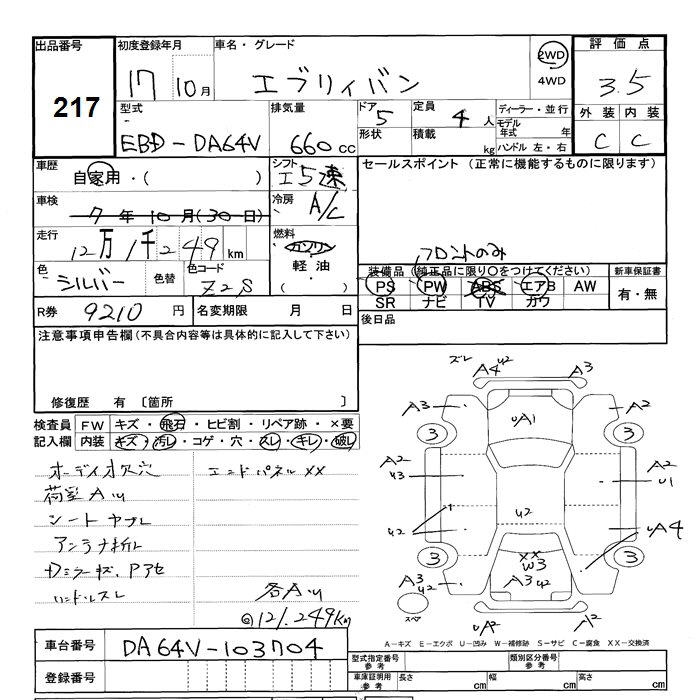 出品番号 初度登録年月 車名・グレード 2WD 4WD 評価点
217 17 10月 エブリィバン 3.5
型式 排気量 ドア 5 定員 4人 ディーラー・並行 外装 内装
EBD-DA64V 660cc 形状 積載 kg モデル年式 年 C C
ハンドル 左・右
車歴 自家用・( ) シフト I5速 セールスポイント (正常に機能するものに限ります)
車検 7年10月(30日) 冷房 A/C
走行 12万1千249km 燃料 ガソリン 軽油 ( )
フロントのみ
色 シルバー 色替 色コード Z2S
装備品 (純正品に限り○をつけてください) 新車保証書
PS PW ABS エアB AW 有・無
SR ナビ TV カワ
R券 9210円 名変期限 月 日 後日品
注意事項申告欄(不具合内容等は具体的に記入して下さい)
修復歴 有 〔箇所 〕
検査員 FW キズ・飛石・ヒビ割・リペア跡・×要
記入欄 内装 キズ・汚レ・コゲ・穴・スレ・キレ・破レ
オーディオ欠穴 エンドパネルXX
荷室AU
シートヤブレ
アンテナ折レ
ハンドルスレ
各AU
◎121.249km
ズレ A4 U2 A3
A3 A2
3 UA1 3
A2 U3 A2 U1
1
U2 U2 UA4
3 XX W3 3
A3 U2 A3 U2
スペア UA2 A2
A-キズ E-エクボ U-凹み W-補修跡 S-サビ C-腐食 XX-交換済
車台番号 DA64V-103704
型式指定番号 参考 類別区分番号 参考
登録番号 車庫証明用 参考 長さ cm 幅 cm 高さ cm